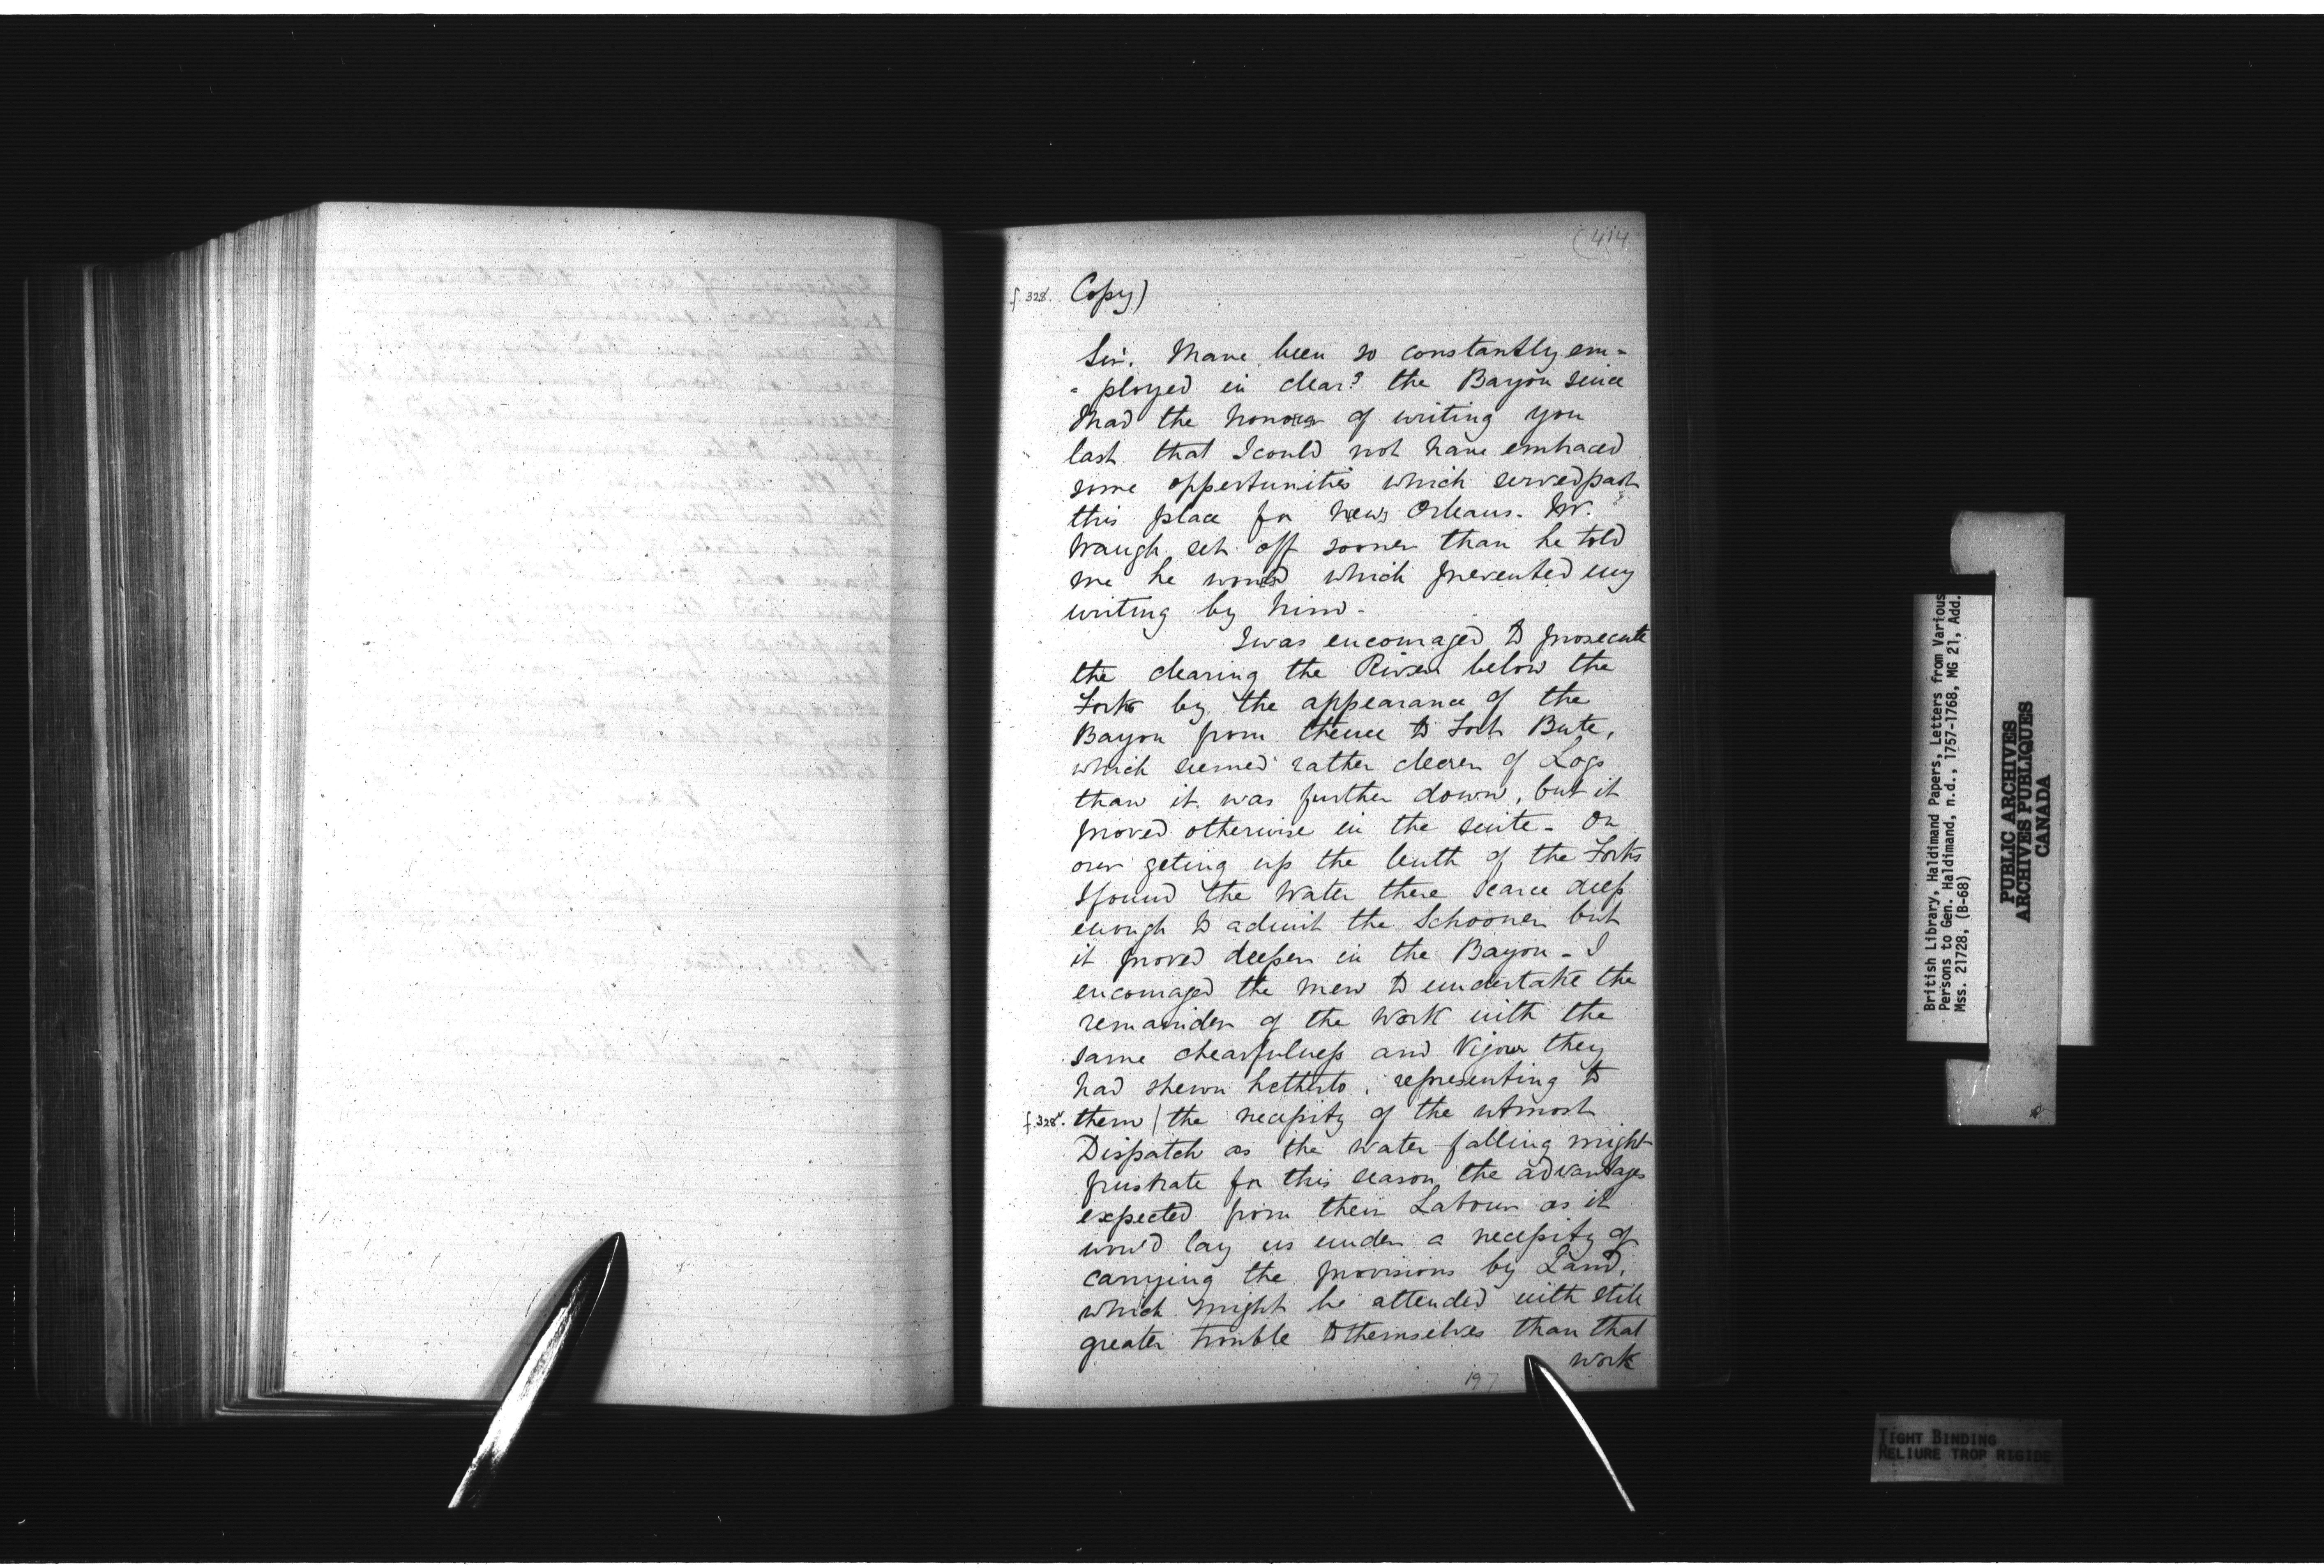 (414
f. 328. Copy)
Sir. I have been so constantly em=
= ployed in clear? the Bayou since
I had the honour of writing you
last that I could not have embraced
some oppertunities which served past
this place for New Orleans. Mr.
Waugh set off sooner than he told
me he would which prevented my
writing by him -
I was encouraged to prosecute
the clearing the River below the
Forks by the appearance of the
Bayou from thence to Fort Bute,
which seemed rather clearer of Logs
than it was further down, but it
proved otherwise in the suite - On
our geting up the lenth of the Forks
I found the Water there scarce deep
enough to admit the Schooner but
it proved deeper in the Bayou - I
encouraged the men to undertake the
remainder of the Work with the
same chearfulness and Vigour they
had shewn hetherto, representing to
f. 328v. them | the necessity of the utmost
Dispatch as the Water falling might
frustrate for this season the advantages
expected from their Labour as it
wou'd lay us under a necessity of
carrying the provisions by Land,
which might be attended with still
greater trouble to themselves than that
work
197
British Library, Haldimand Papers, Letters from Various
Persons to Gen. Haldimand, n.d., 1757-1768, MG 21, Add.
Mss. 21728, (B-68)
PUBLIC ARCHIVES
ARCHIVES PUBLIQUES
CANADA
TIGHT BINDING
RELIURE TROP RIGIDE